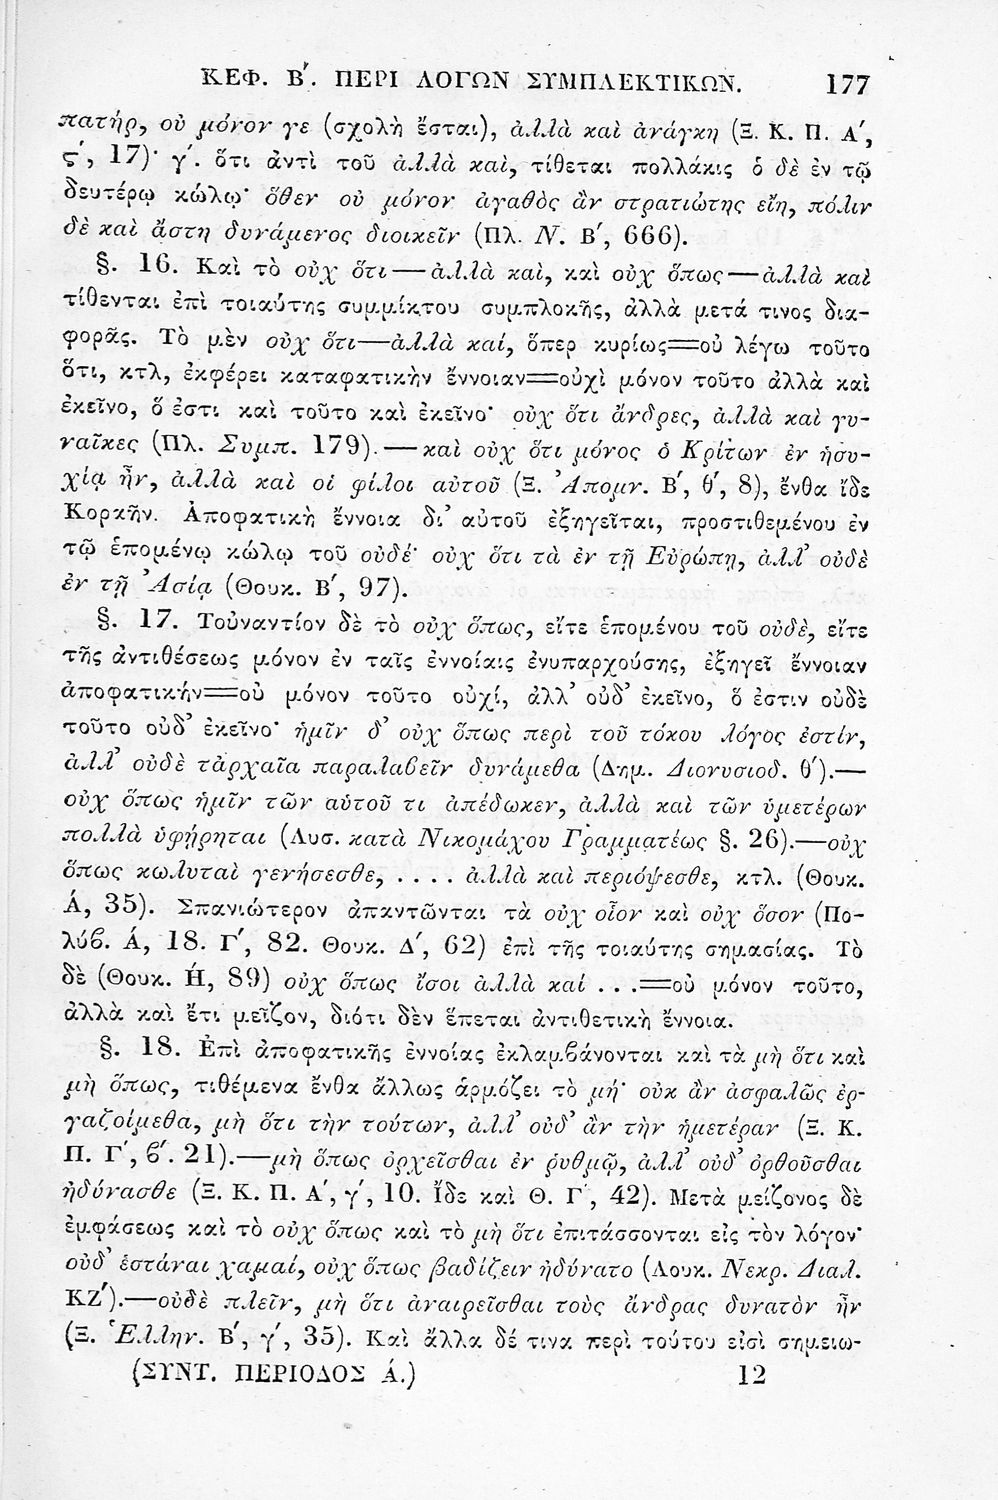 ΚΕΦ. Β΄. ΠΕΡΙ ΛΟΓΩΝ ΣΥΜΠΛΕΚΤΙΚΩΝ. 177
πατήρ, οὐ μόνον γε (σχολὴ ἔσται), ἀλλὰ καὶ ἀνάγκη (Ξ. Κ. Π. Α΄,
ϛ΄, 17)· γ΄. ὅτι ἀντὶ τοῦ ἀλλὰ καὶ, τίθεται πολλάκις ὁ δὲ ἐν τῷ
δευτέρῳ κώλῳ· ὅθεν οὐ μόνον ἀγαθὸς ἂν στρατιώτης εἴη, πόλιν
δὲ καὶ ἄστη δυνάμενος διοικεῖν (Πλ. Ν. Β΄, 666).
§. 16. Καὶ τὸ οὐχ ὅτι — ἀλλὰ καὶ, καὶ οὐχ ὅπως — ἀλλὰ καὶ
τίθενται ἐπὶ τοιαύτης συμμίκτου συμπλοκῆς, ἀλλὰ μετά τινος δια-
φορᾶς. Τὸ μὲν οὐχ ὅτι—ἀλλὰ καί, ὅπερ κυρίως=οὐ λέγω τοῦτο
ὅτι, κτλ, ἐκφέρει καταφατικὴν ἔννοιαν=οὐχὶ μόνον τοῦτο ἀλλὰ καὶ
ἐκεῖνο, ὅ ἐστι καὶ τοῦτο καὶ ἐκεῖνο· οὐχ ὅτι ἄνδρες, ἀλλὰ καὶ γυ-
ναῖκες (Πλ. Συμπ. 179).—καὶ οὐχ ὅτι μόνος ὁ Κρίτων ἐν ἡσυ-
χίᾳ ἦν, ἀλλὰ καὶ οἱ φίλοι αὐτοῦ (Ξ. Ἀπομν. Β΄, θ΄, 8), ἔνθα ἴδε
Κοραῆν. Ἀποφατικὴ ἔννοια δι᾽ αὐτοῦ ἐξηγεῖται, προστιθεμένου ἐν
τῷ ἑπομένῳ κώλῳ τοῦ οὐδέ· οὐχ ὅτι τὰ ἐν τῇ Εὐρώπῃ, ἀλλ᾽ οὐδὲ
ἐν τῇ Ἀσίᾳ (Θουκ. Β΄, 97).
§. 17. Τοὐναντίον δὲ τὸ οὐχ ὅπως, εἴτε ἑπομένου τοῦ οὐδὲ, εἴτε
τῆς ἀντιθέσεως μόνον ἐν ταῖς ἐννοίαις ἐνυπαρχούσης, ἐξηγεῖ ἔννοιαν
ἀποφατικήν=οὐ μόνον τοῦτο οὐχί, ἀλλ᾽ οὐδ᾽ ἐκεῖνο, ὅ ἐστιν οὐδὲ
τοῦτο οὐδ᾽ ἐκεῖνο· ἡμῖν δ᾽ οὐχ ὅπως περὶ τοῦ τόκου λόγος ἐστίν,
ἀλλ᾽ οὐδὲ τἀρχαῖα παραλαϐεῖν δυνάμεθα (Δημ. Διονυσιοδ. θ΄).—
οὐχ ὅπως ἡμῖν τῶν αὑτοῦ τι ἀπέδωκεν, ἀλλὰ καὶ τῶν ὑμετέρων
πολλὰ ὑφῄρηται (Λυσ. κατὰ Νικομάχου Γραμματέως §. 26).—οὐχ
ὅπως κωλυταὶ γενήσεσθε, .... ἀλλὰ καὶ περιόψεσθε, κτλ. (Θουκ.
Ά, 35). Σπανιώτερον ἀπαντῶνται τὰ οὐχ οἷον καὶ οὐχ ὅσον (Πο-
λύϐ. Ά, 18. Γ΄, 82. Θουκ. Δ΄, 62) ἐπὶ τῆς τοιαύτης σημασίας. Τὸ
δὲ (Θουκ. Ή, 89) οὐχ ὅπως ἴσοι ἀλλὰ καί ...=οὐ μόνον τοῦτο,
ἀλλὰ καὶ ἔτι μεῖζον, διότι δὲν ἕπεται ἀντιθετικὴ ἔννοια.
§. 18. Ἐπὶ ἀποφατικῆς ἐννοίας ἐκλαμϐάνονται καὶ τὰ μὴ ὅτι καὶ
μὴ ὅπως, τιθέμενα ἔνθα ἄλλως ἁρμόζει τὸ μή· οὐκ ἂν ἀσφαλῶς ἐρ-
γαζοίμεθα, μὴ ὅτι τὴν τούτων, ἀλλ᾽ οὐδ᾽ ἂν τὴν ἡμετέραν (Ξ. Κ.
Π. Γ΄, ϐ΄. 21).—μὴ ὅπως ὀρχεῖσθαι ἐν ῥυθμῷ, ἀλλ᾽ οὐδ᾽ ὀρθοῦσθαι
ἠδύνασθε (Ξ. Κ. Π. Α΄, γ΄, 10. Ἴδε καὶ Θ. Γ΄, 42). Μετὰ μείζονος δὲ
ἐμφάσεως καὶ τὸ οὐχ ὅπως καὶ τὸ μὴ ὅτι ἐπιτάσσονται εἰς τὸν λόγον·
οὐδ᾽ ἑστάναι χαμαί, οὐχ ὅπως βαδίζειν ἠδύνατο (Λουκ. Νεκρ. Διαλ.
ΚΖ΄).—οὐδὲ πλεῖν, μὴ ὅτι ἀναιρεῖσθαι τοὺς ἄνδρας δυνατὸν ἦν
(Ξ. Ἑλλην. Β΄, γ΄, 35). Καὶ ἄλλα δέ τινα περὶ τούτου εἰσὶ σημειω-
(ΣΥΝΤ. ΠΕΡΙΟΔΟΣ Ά.) 12